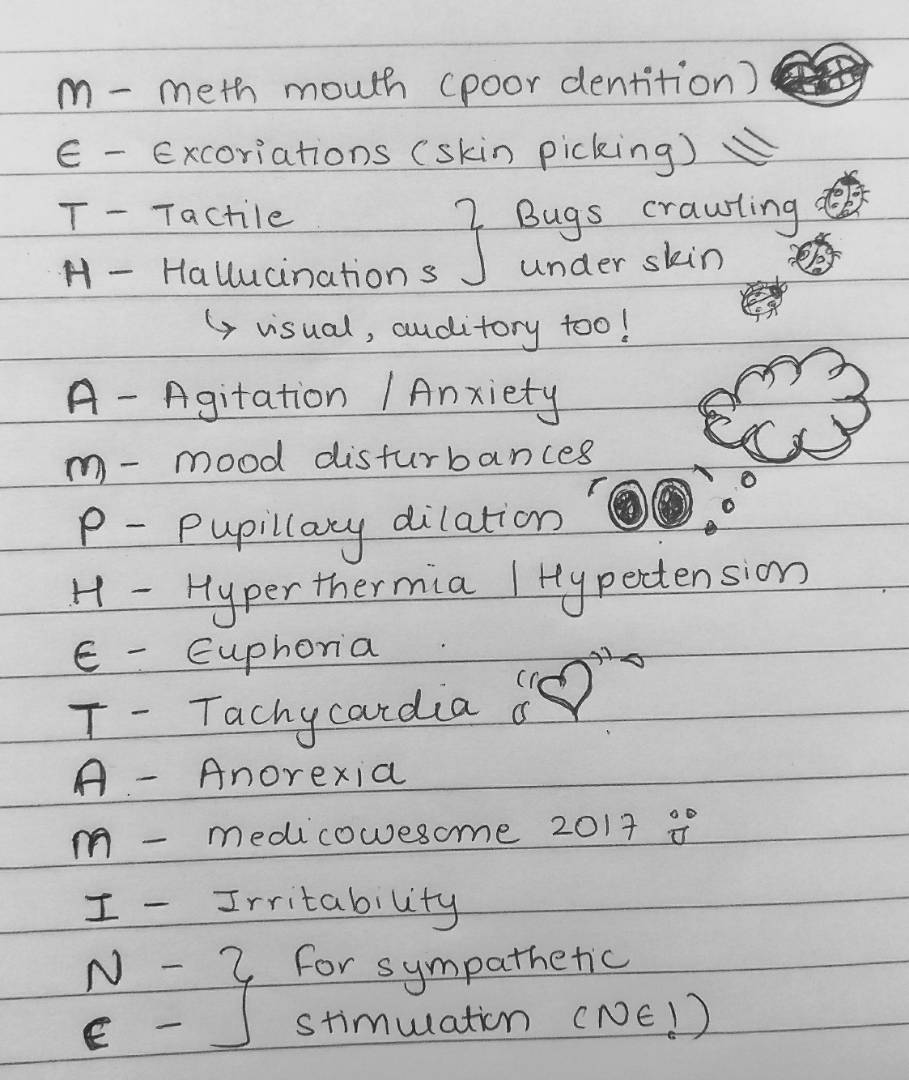 M - Meth mouth (poor dentition)
E - Excoriations (skin picking)
T - Tactile } Bugs crawling
H - Hallucinations } under skin
↳ visual, auditory too!
A - Agitation / Anxiety
M - Mood disturbances
P - Pupillary dilation
H - Hyperthermia / Hypertension
E - Euphoria
T - Tachycardia
A - Anorexia
M - Medicowesome 2017
I - Irritability
N - } for sympathetic
E - } stimulation (NE!)